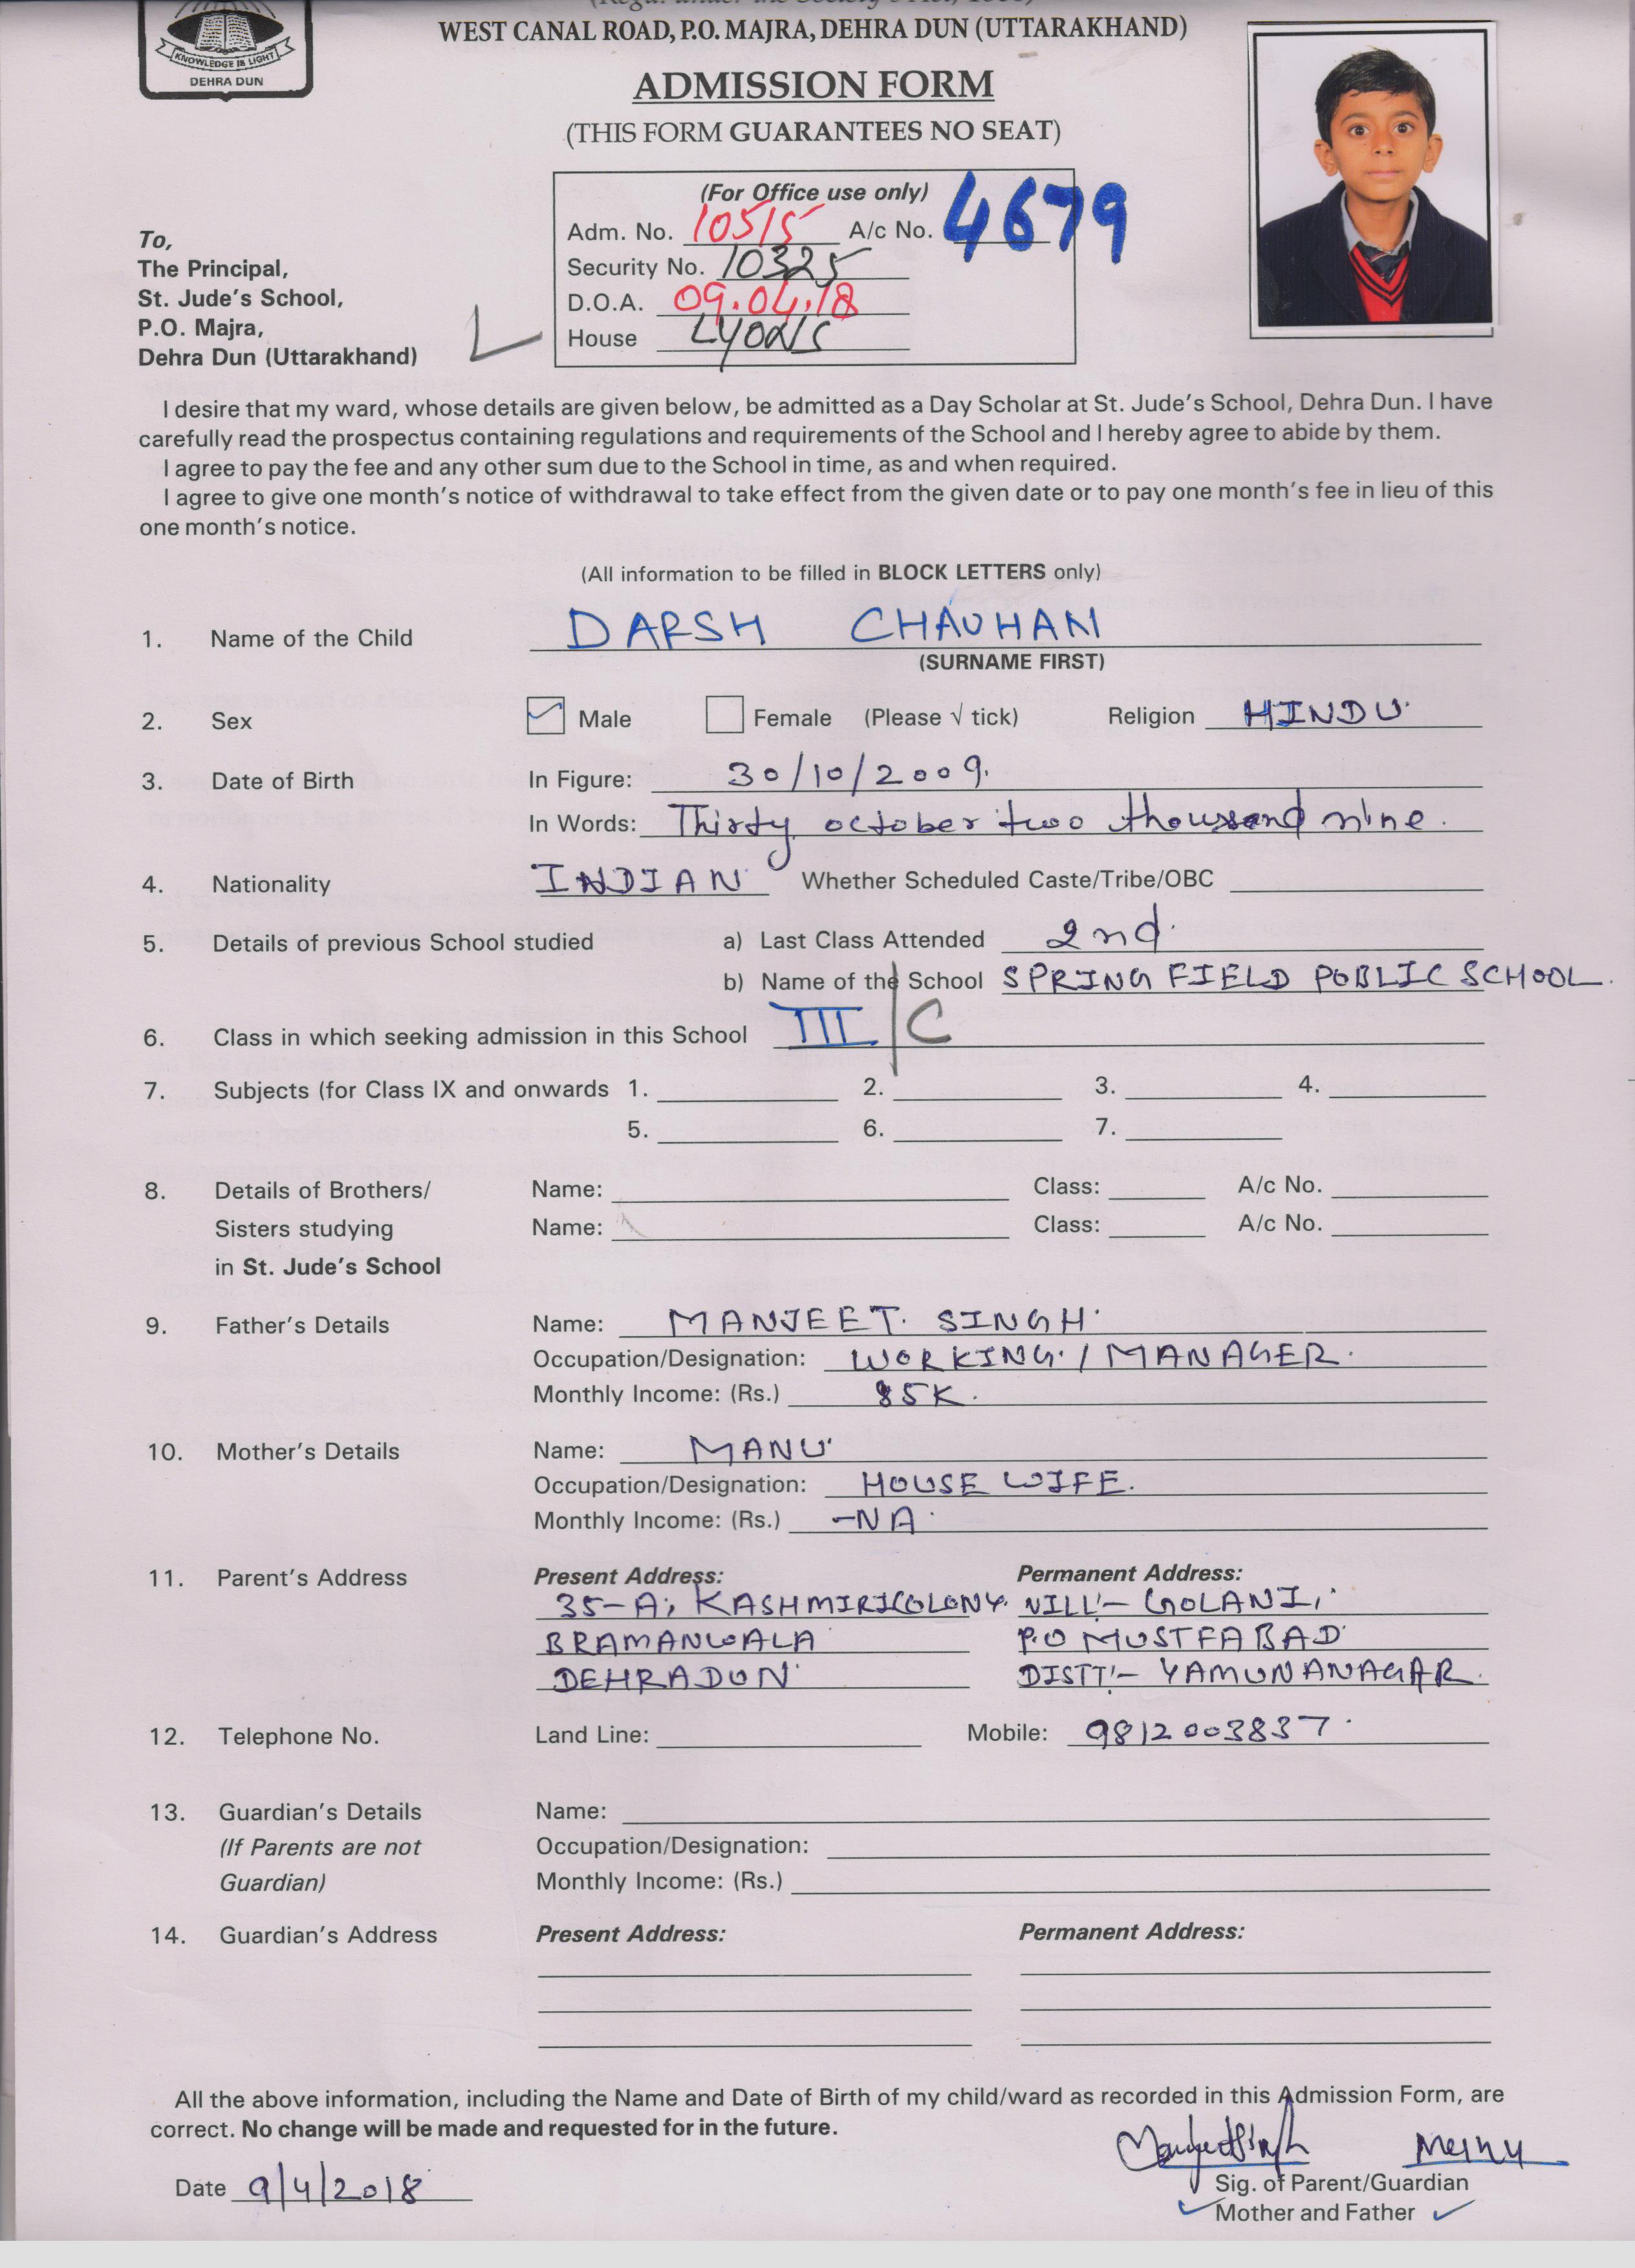 KNOWLEDGE IS LIGHT
DEHRA DUN
WEST CANAL ROAD, P.O. MAJRA, DEHRA DUN (UTTARAKHAND)
ADMISSION FORM
(THIS FORM GUARANTEES NO SEAT)
(For Office use only)
Adm. No. 10515 A/c No. 4679
Security No. 10325
D.O.A. 09.04.18
House LYONS
To,
The Principal,
St. Jude's School,
P.O. Majra,
Dehra Dun (Uttarakhand)
I desire that my ward, whose details are given below, be admitted as a Day Scholar at St. Jude's School, Dehra Dun. I have
carefully read the prospectus containing regulations and requirements of the School and I hereby agree to abide by them.
I agree to pay the fee and any other sum due to the School in time, as and when required.
I agree to give one month's notice of withdrawal to take effect from the given date or to pay one month's fee in lieu of this
one month's notice.
(All information to be filled in BLOCK LETTERS only)
1. Name of the Child DARSH CHAUHAN
(SURNAME FIRST)
2. Sex Male Female (Please √ tick) Religion HINDU
3. Date of Birth In Figure: 30/10/2009.
In Words: Thirty october two thousand nine.
4. Nationality INDIAN Whether Scheduled Caste/Tribe/OBC
5. Details of previous School studied a) Last Class Attended 2nd
b) Name of the School SPRING FIELD PUBLIC SCHOOL.
6. Class in which seeking admission in this School III/C
7. Subjects (for Class IX and onwards 1. 2. 3. 4.
5. 6. 7.
8. Details of Brothers/ Name: Class: A/c No.
Sisters studying Name: Class: A/c No.
in St. Jude's School
9. Father's Details Name: MANJEET. SINGH
Occupation/Designation: WORKING./MANAGER.
Monthly Income: (Rs.) 85K.
10. Mother's Details Name: MANU
Occupation/Designation: HOUSE WIFE.
Monthly Income: (Rs.) -NA
11. Parent's Address Present Address: Permanent Address:
35-A, KASHMIRI COLONY VILL:- GOLANI,
BRAMANWALA P.O MUSTFABAD
DEHRADUN DISTT:- YAMUNANAGAR.
12. Telephone No. Land Line: Mobile: 9812003837
13. Guardian's Details Name:
(If Parents are not Occupation/Designation:
Guardian) Monthly Income: (Rs.)
14. Guardian's Address Present Address: Permanent Address:
All the above information, including the Name and Date of Birth of my child/ward as recorded in this Admission Form, are
correct. No change will be made and requested for in the future.
Manjeet Singh
Date 9/4/2018
Sig. of Parent/Guardian
Mother and Father